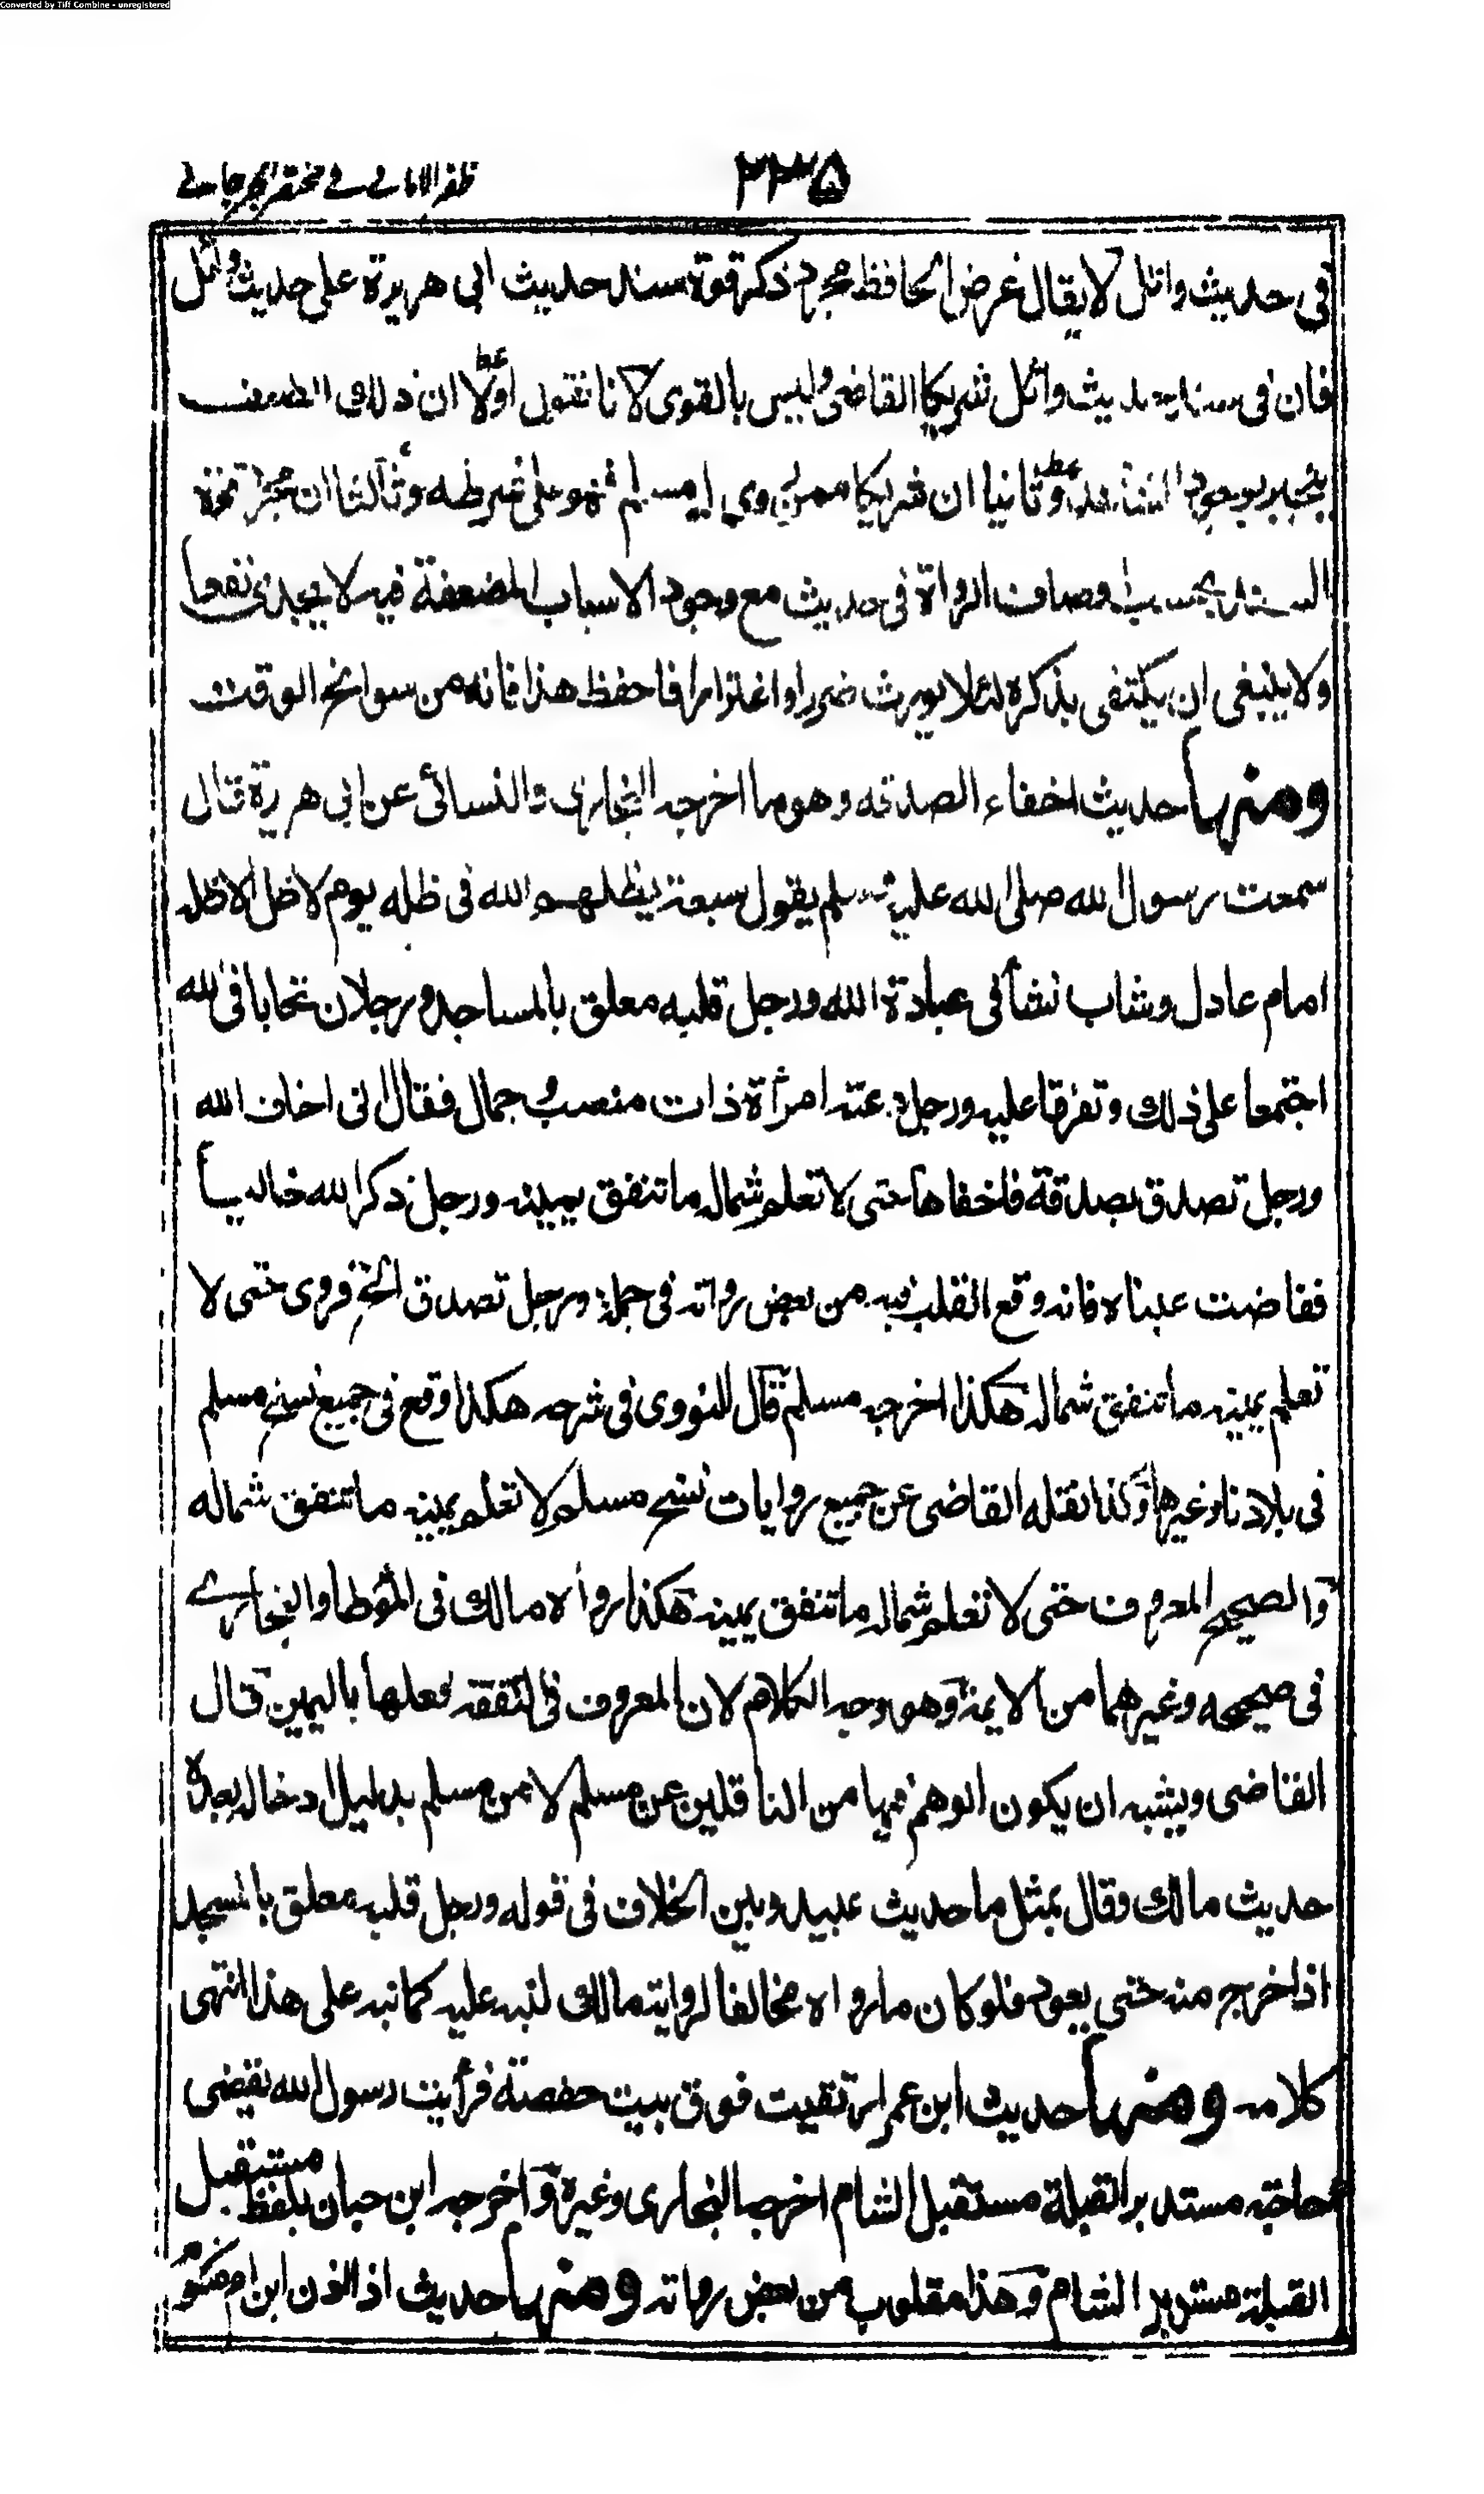 Converted by Tiff Combine - unregistered
ظفر الامانی فی مختصر الجرجانی
۲۳۵
فی حدیث وائل لا یقال غرض الحافظ مجرد ذکر قوة سند حدیث ابی هریرة علی حدیث وائل
فان فی سند حدیث وائل شریکا القاضی ولیس بالقوی لانا نقول اولا ان ذلک الضعف
ینجبر بوجود الشاهد وثانیا ان شریکا ممن روی له مسلم فهو علی شرطه وثالثا ان مجرد قوة
السند بحسب اوصاف الرواة فی حدیث مع وجود الاسباب المضعفة فیه لا یجدی نفعا
ولا ینبغی ان یکتفی بذکره لئلا یورث ضررا واغترارا فاحفظ هذا فانه من سوانح الوقت
ومنها حدیث اخفاء الصدقه وهو ما اخرجه البخاری والنسائی عن ابی هریرة قال
سمعت رسول الله صلی الله علیه وسلم یقول سبعة یظلهم الله فی ظله یوم لا ظل الا ظله
امام عادل وشاب نشأ فی عبادة الله ورجل قلبه معلق بالمساجد ورجلان تحابا فی الله
اجتمعا علی ذلک وتفرقا علیه ورجل دعته امرأة ذات منصب وجمال فقال انی اخاف الله
ورجل تصدق بصدقة فاخفاها حتی لا تعلم شماله ما تنفق یمینه ورجل ذکر الله خالیاً
ففاضت عیناه فانه وقع القلب فیه من بعض رواته فی جملة ورجل تصدق الخ فروی حتی لا
تعلم یمینه ما تنفق شماله هکذا اخرجه مسلم قال النووی فی شرحه هکذا وقع فی جمیع نسخ مسلم
فی بلادنا وغیرها وکذا نقله القاضی عن جمیع روایات نسخ مسلم لا تعلم یمینه ما تنفق شماله
والصحیح المعروف حتی لا تعلم شماله ما تنفق یمینه هکذا رواه مالک فی الموطا والبخاری
فی صحیحه وغیرهما من الایمة وهو وجه الکلام لان المعروف فی النفقة فعلها بالیمین قال
القاضی ویشبه ان یکون الوهم فیها من الناقلین عن مسلم لا من مسلم بدلیل ادخاله بعده
حدیث مالک وقال بمثل ما حدیث عبید وبین الخلاف فی قوله ورجل قلبه معلق بالمسجد
اذا خرج منه حتی یعود فلو کان ما رواه مخالفا لروایة مالک لنبه علیه کما نبه علی هذا انتهی
کلامه ومنها حدیث ابن عمر ارتقیت فوق بیت حفصة فرأیت رسول الله یقضی
حاجته مستدبر القبلة مستقبل الشام اخرجه البخاری وغیره واخرجه ابن حبان بلفظ مستقبل
القبلة مستدبر الشام وهذا مقلوب من بعض رواته ومنها حدیث اذا اذن ابن ام مکتوم